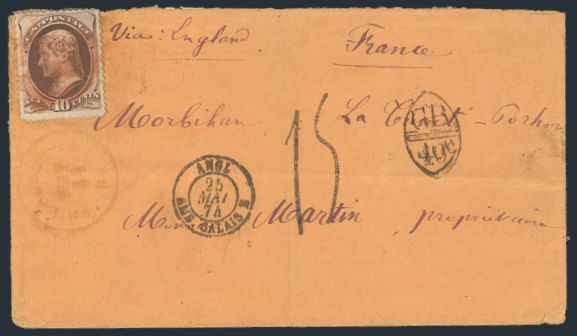 U.S. POSTAGE
CENTS 10 CENTS
Via: England
France
Morbihan
La
GB
40c
15
ANGL.
25
MAI
74
AMB. CALAIS E
Martin
propriétaire